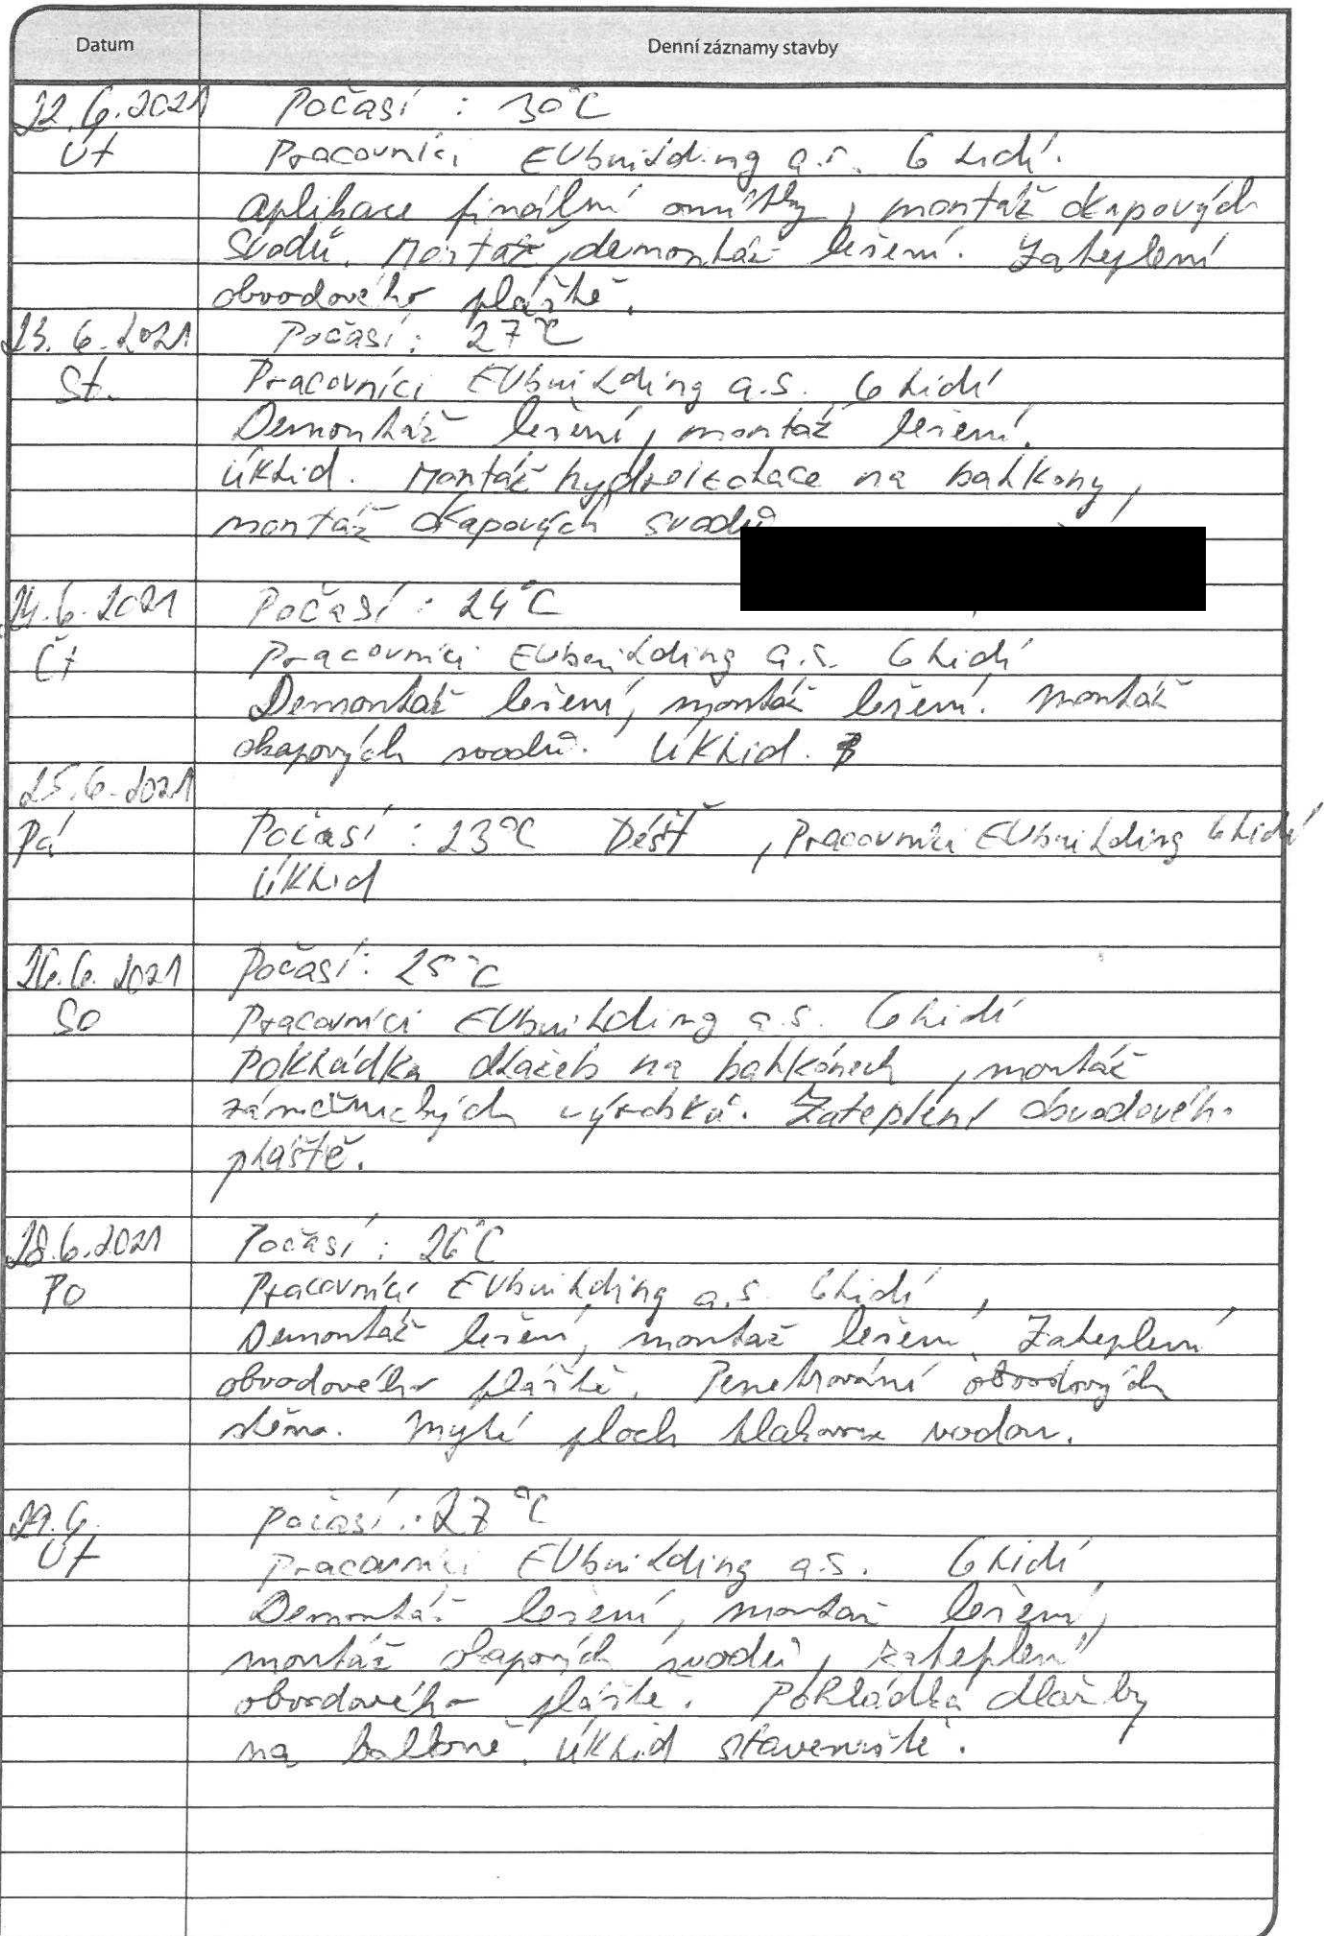 Datum Denní záznamy stavby
22.6.2021 Počasí : 30°C
Út Pracovníci EUbuilding a.s. 6 lidí.
aplikace finální omítky, montáž okapových
svodů. Montáž, demontáž lešení. Zateplení
obvodového pláště.
23.6.2021 Počasí: 27°C
St. Pracovníci EUbuilding a.s. 6 lidí
Demontáž lešení, montáž lešení.
Úklid. Montáž hydroizolace na balkony,
montáž okapových svodů
24.6.2021 Počasí : 24°C
Čt Pracovníci EUbuilding a.s. 6 lidí
Demontáž lešení, montáž lešení. Montáž
okapových svodů. Úklid.
25.6.2021
Pá Počasí : 23°C Déšť, Pracovníci EUbuilding 6 lidí
Úklid
26.6.2021 Počasí: 25°C
So Pracovníci EUbuilding a.s. 6 lidí
Pokládka dlažeb na balkónech, montáž
zámečnických výrobků. Zateplení obvodového
pláště.
28.6.2021 Počasí: 26°C
Po Pracovníci EUbuilding a.s. 6 lidí,
Demontáž lešení, montáž lešení, Zateplení
obvodového pláště. Penetrování obvodových
stěna. Mytí ploch tlakovou vodou.
29.6. Počasí: 27°C
Út Pracovníci EUbuilding a.s. 6 lidí
Demontáž lešení, montáž lešení,
montáž okapových svodů, zateplení
obvodového pláště. Pokládka dlažby
na balkoně. Úklid staveniště.